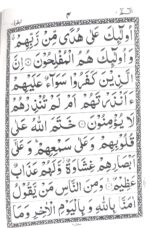 أُولَٰئِكَ عَلَىٰ هُدًى مِّن رَّبِّهِمْ
وَأُولَٰئِكَ هُمُ الْمُفْلِحُونَ إِنَّ
الَّذِينَ كَفَرُوا سَوَاءٌ عَلَيْهِمْ
ءَأَنذَرْتَهُمْ أَمْ لَمْ تُنذِرْهُمْ
لَا يُؤْمِنُونَ خَتَمَ اللَّهُ عَلَىٰ
قُلُوبِهِمْ وَعَلَىٰ سَمْعِهِمْ وَعَلَىٰ
أَبْصَارِهِمْ غِشَاوَةٌ وَلَهُمْ عَذَابٌ
عَظِيمٌ وَمِنَ النَّاسِ مَن يَقُولُ
آمَنَّا بِاللَّهِ وَبِالْيَوْمِ الْآخِرِ وَمَا